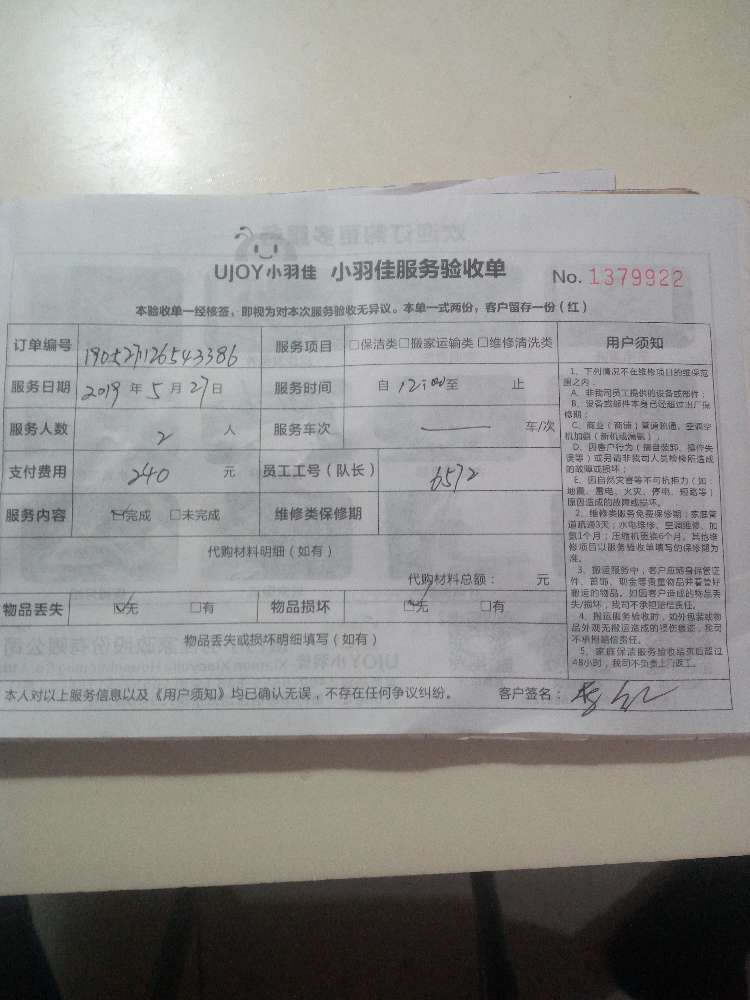 UJOY小羽佳 小羽佳服务验收单 No. 1379922
本验收单一经核签，即视为对本次服务验收无异议。本单一式两份，客户留存一份（红）
订单编号 190527126543386 服务项目 □保洁类□搬家运输类□维修清洗类
服务日期 2019 年 5 月 27 日 服务时间 自 12:00 至 止
服务人数 2 人 服务车次 —— 车/次
支付费用 240 元 员工工号（队长） 6572
服务内容 ☑完成 □未完成 维修类保修期
代购材料明细（如有）
代购材料总额： 元
物品丢失 ☑无 □有 物品损坏 ☑无 □有
物品丢失或损坏明细填写（如有）
本人对以上服务信息以及《用户须知》均已确认无误，不存在任何争议纠纷。 客户签名：
用户须知
1、下列情况不在维修项目的维保范
围之内
A、非我司员工提供的设备或部件；
B、设备或部件本身已经超过出厂保
修期；
C、商业（商铺）管道疏通、空调空
机加氟（新机或漏氟）；
D、因客户行为（擅自装卸、操作失
误等）或另请非我司人员检修所造成
的故障或损坏；
E、因自然灾害等不可抗拒力（如：
地震、雷电、火灾、停电、短路等）
原因造成的故障或损坏。
2、维修类服务免费保修期：家庭管
道疏通3天；水电维修、空调维修、加
氟1个月；压缩机更换6个月。其他维
修项目以服务验收单填写的保修期为
准。
3、搬运服务中，客户应随身保管证
件、首饰、现金等贵重物品并看管好
搬运的物品。如因客户造成的物品丢
失/损坏，我司不承担赔偿责任。
4、搬运服务验收时，如外包装或物
品外观无搬运造成的损伤痕迹，我司
不承担赔偿责任。
5、家庭保洁服务验收结束后超过
48小时，我司不负责上门返工。